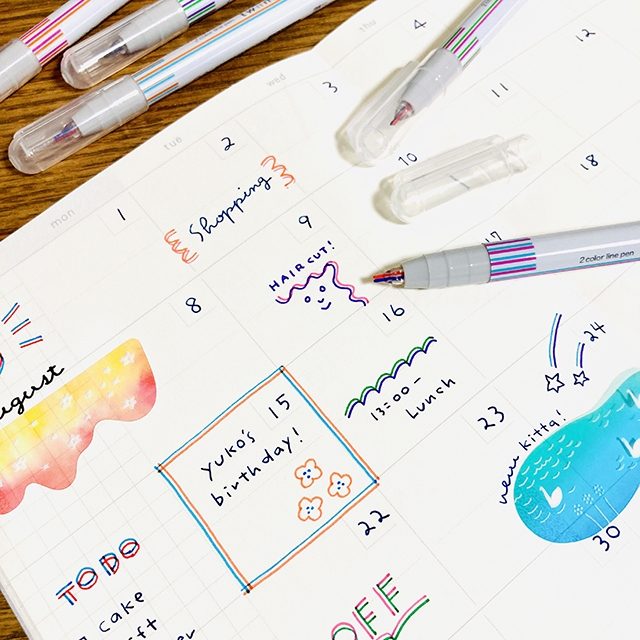 mon
tue
wed
thu
1
2
3
4
Shopping
8
9
10
11
12
HAIRCUT!
15
16
17
18
yuko's
birthday!
13:00-
Lunch
22
23
24
new kitta!
30
OFF
ugust
TODO
cake
2 color line pen